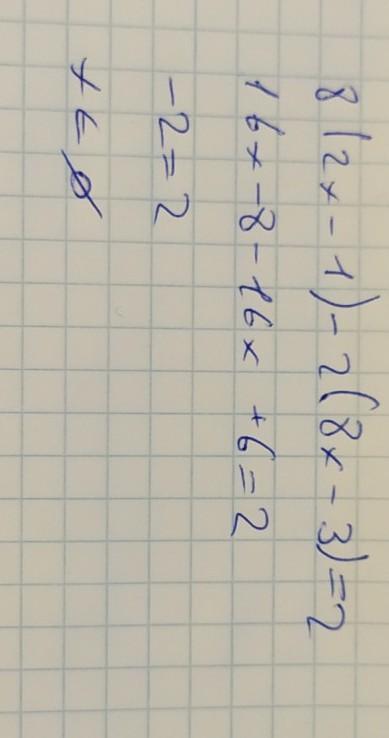 8(2x-1)-2(8x-3)=2
16x-8-16x+6=2
-2=2
x∈∅